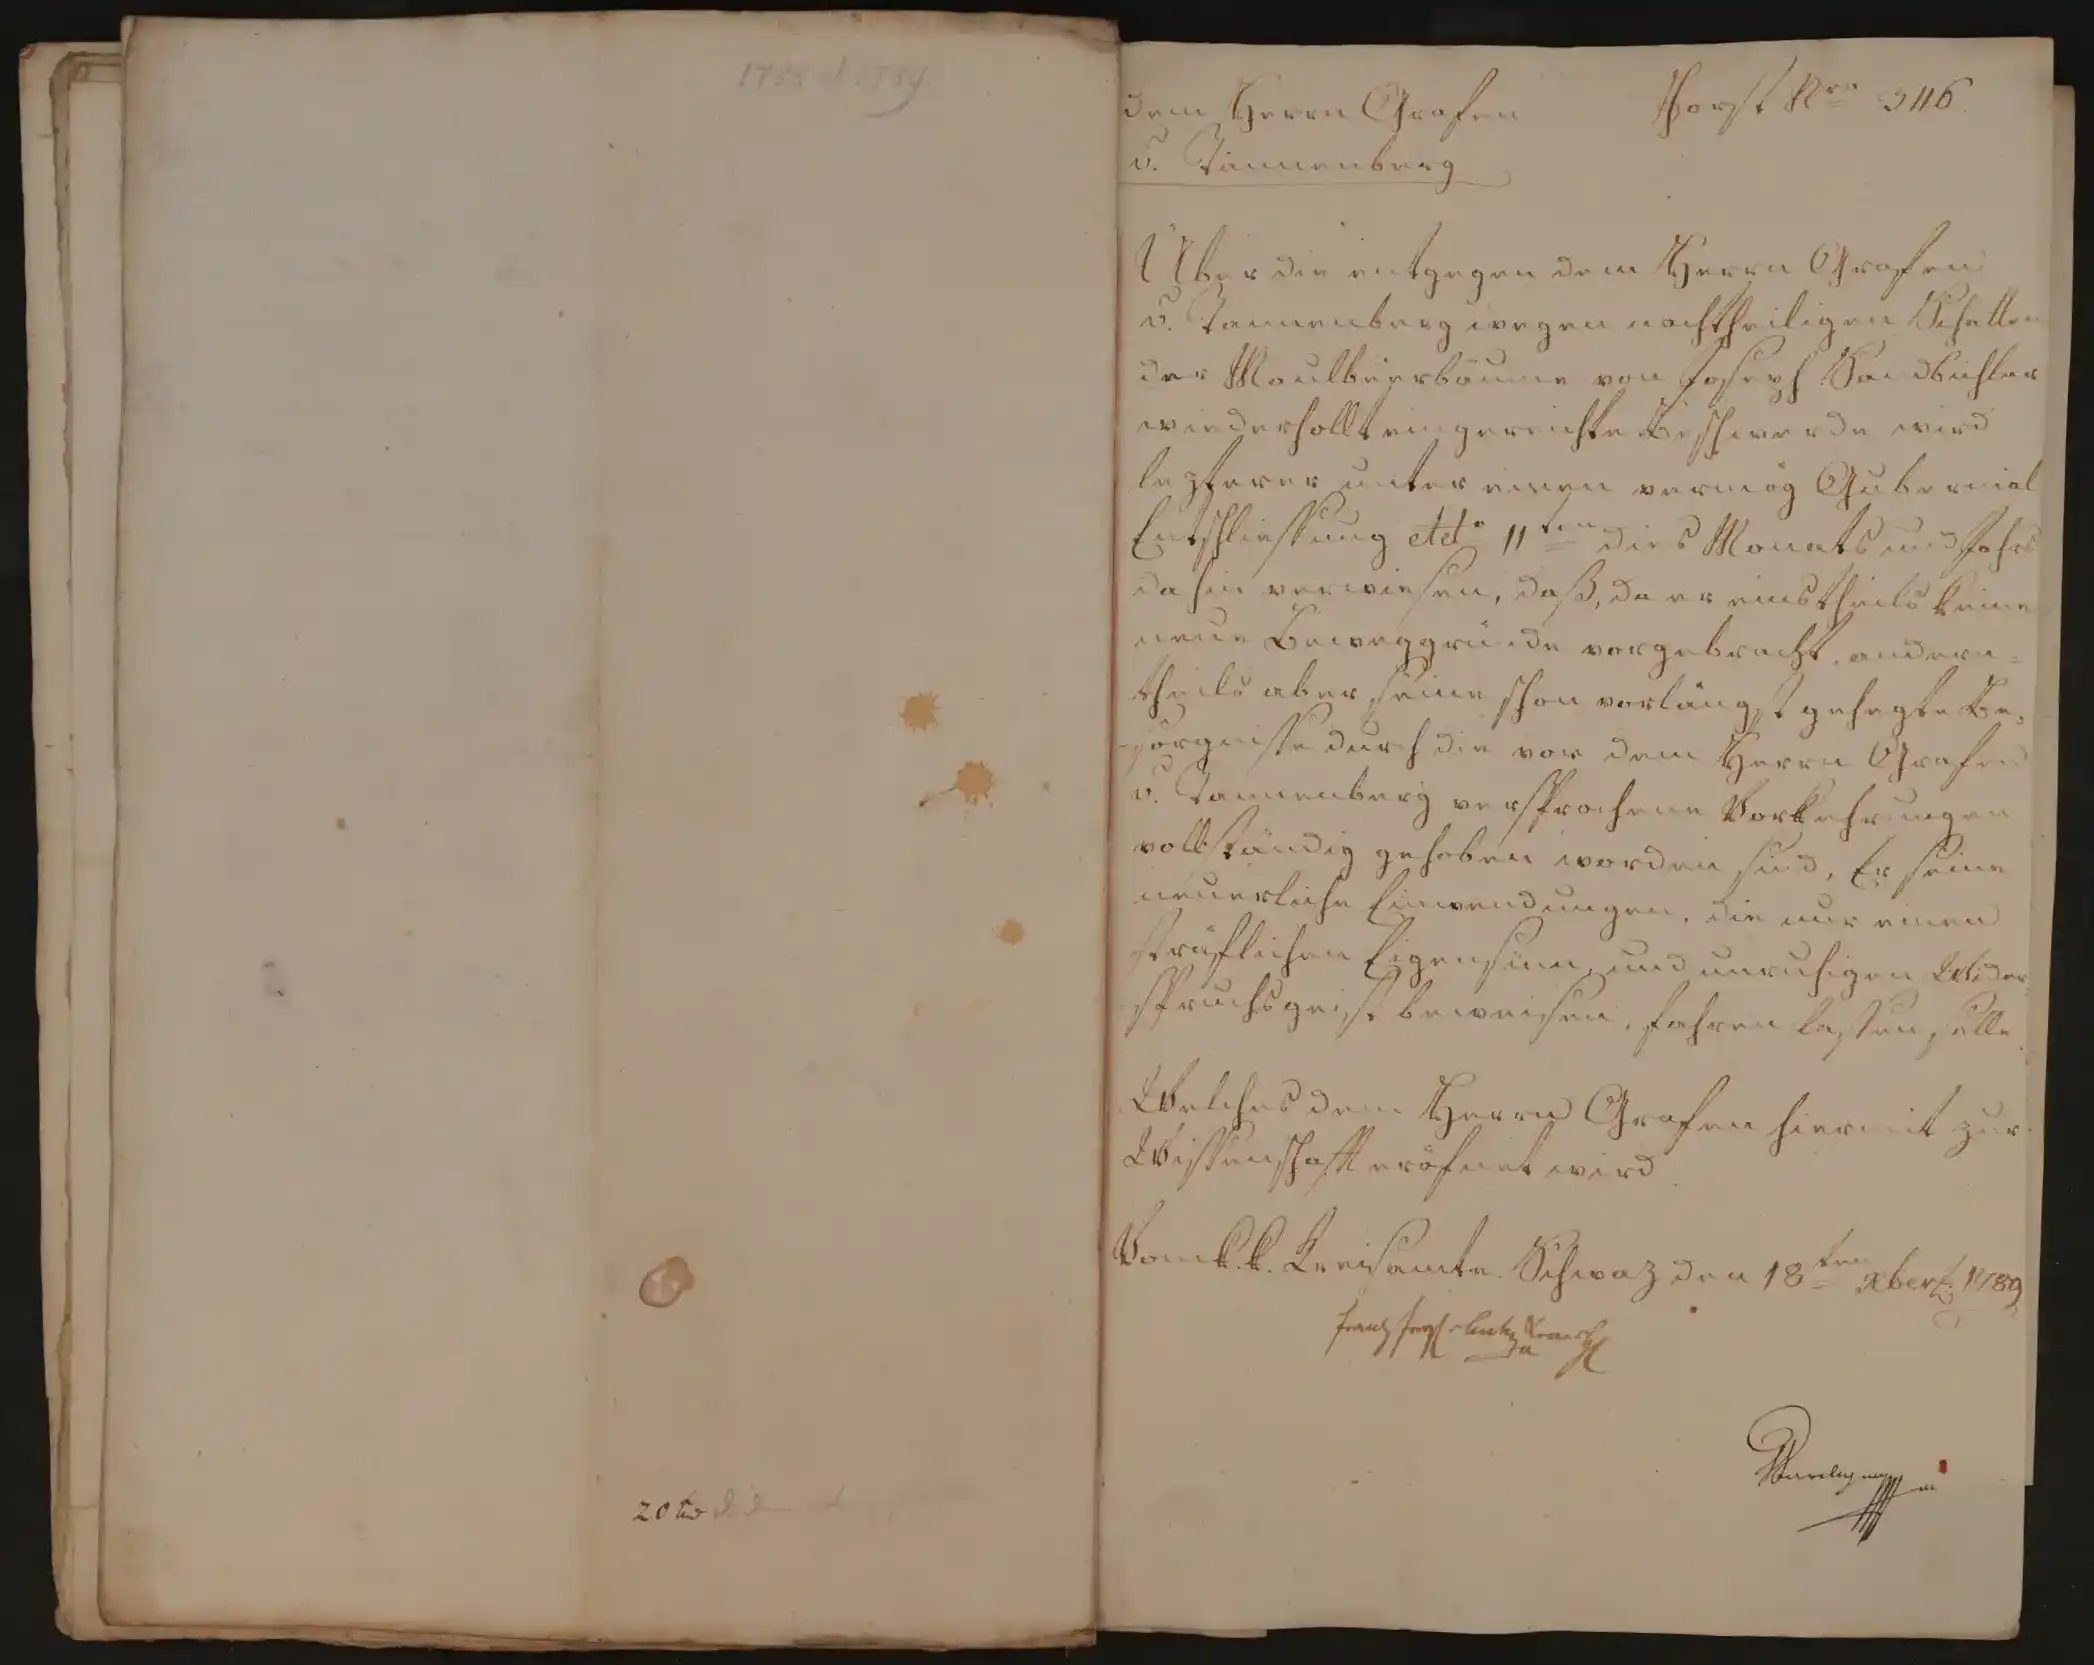 dem Herrn Grafen
v. Tannenberg
Nro 5116
Über die entgegen dem Herrn Grafen
v. Tannenberg wegen nachtheiligen Schatten
der Maulbeerbäume von Joseph Sandbichler
wiederhollt eingereichte Beschwerde wird
lezterer unter einen vermög Gubernial
Entschliessung ddo 11ten dies Monats und Jahrs
dahin verwiesen, daß, da er einstheils keine
neue Beweggründe vorgebracht, andern-
theils aber seine schon vorlängst gehegte Be-
sorgnisse durch die von dem Herrn Grafen
v. Tannenberg versprochene Vorkehrungen
vollständig gehoben worden sind, Er seine
neuerliche Einwendungen, die nur einen
sträflichen Eigensinn, und unruhigen Wider-
spruchsgeist beweisen, fahren lassen solle.
Welches dem Herrn Grafen hiermit zur
Wissenschaft eröfnet wird
Vom k. k. Kreisamte. Schwaz den 18ten Xber 1789